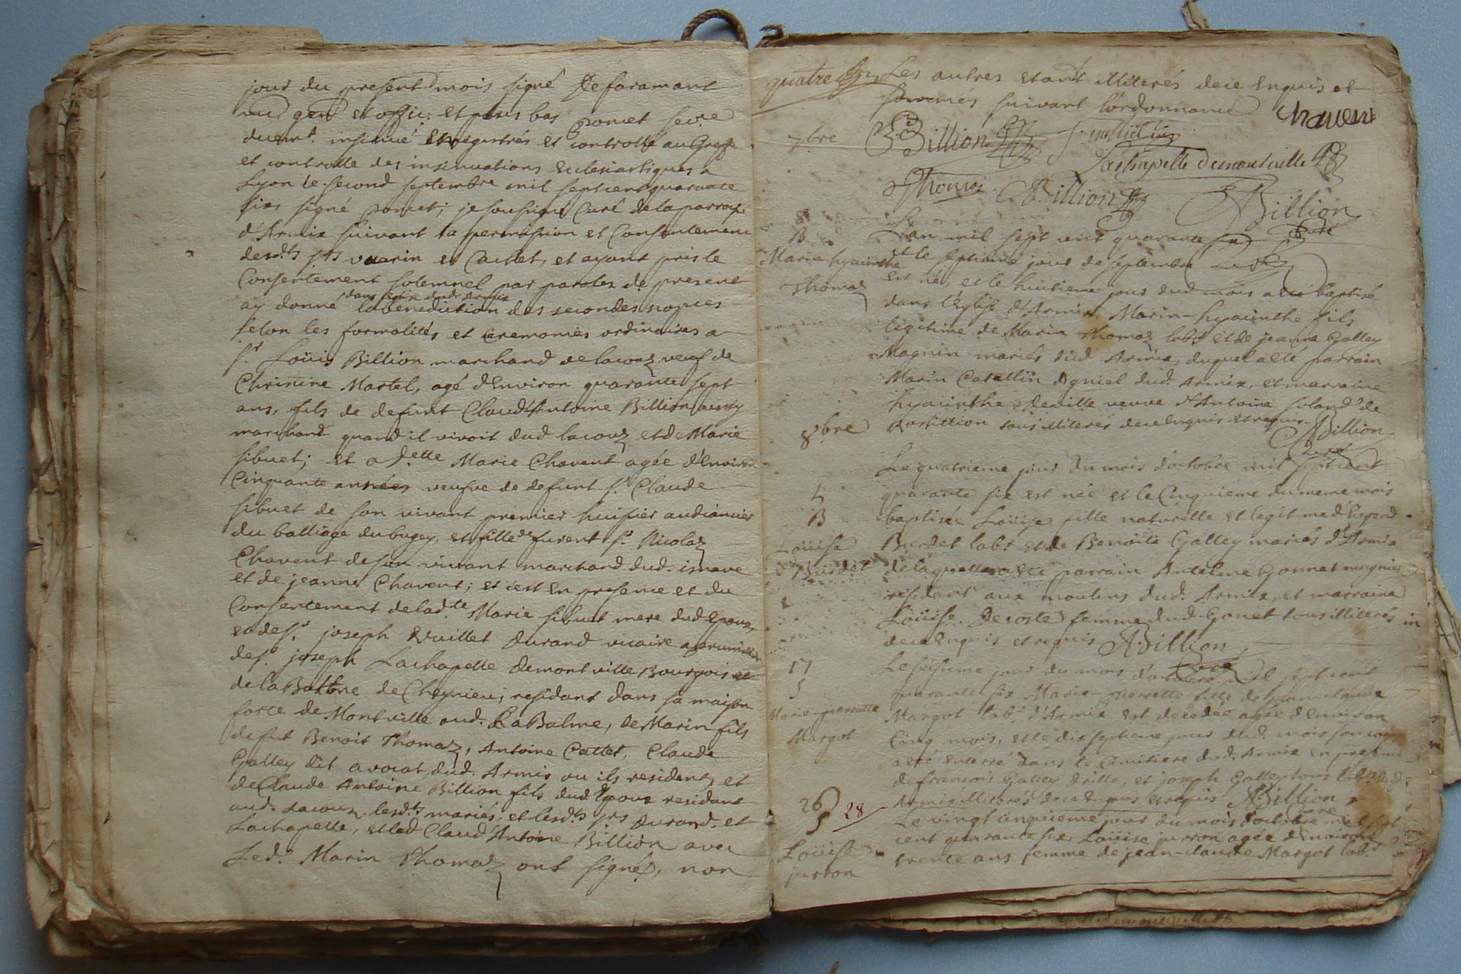 jour du present mois signé De faramant
vic gen et offic: et plus bas Pomet secre
duemt. insinué enregistrés et controllé au Greffe
et controlle des insinuations Ecclesiastiques a
Lyon le second septembre mil sept cent quarante
six signé Pomet; je soussigné Curé de la parroisse
d'Armix suivant la permission et Consentement
desdts srs vuarin et Cattet, et ayant pris le
Consentement solemnel par paroles de present
ay donné la benediction des secondes nopces
selon les formalités et ceremonies ordinaires a
sr. Loüis Billion marchand de lacouz veuf de
Christine Martel, agé d'Environ quarante sept
ans, fils de defunt Claud Antoine Billion aussy
marchand quand il vivoit dud lacouz et de Marie
sibuet; et a delle Marie Chavent agée d'Environ
Cinquante années veufve de defunt sr. Claude
sibuet de son vivant premier huissier audiancier
du balliage du bugey, et fille de furent sr. Nicolas
Chavent de son vivant marchand dud.
et de jeanne Chavent; et c'est En presence et du
Consentement de ladte Marie sibuet mere dud Epoux,
et de sr. joseph Durand vicaire
de sr. joseph Lachapelle demontville Bourgeois
de la Balme de Cheynieu; residant dans sa maison
forte de Montville aud. La Balme, de Marin fils
de fut Benoit Thomaz, Antoine Cattet, Claude
Galley dit avocat, dud. Armix ou ils resident, et
de Claude Antoine Billion fils dud Epoux residant
aud. lacouz, lesdts mariés, et lesdts srs Durand. et
Lachapelle, et led Claud Antoine Billion avec
Led. Marin Thomaz ont signés, non
quatre
Les autres etant illiterés de ce Enquis et
sommés suivant l'ordonnance
Chavent
7bre
Billion
Lachapelle demontville
Thomaz
Billion
Billion
Curé
8
B
Marin hyacinthe
Thomaz
L'an mil sept cent quarante six
et le septieme jour de septembre
Est né, et le huitieme jour dud mois a été baptisé
dans l'Eglise d'Armix Marin-hyacinthe fils
légitime de Marin Thomaz labr et de jeanne Galley
Magnin mariés dud Armix, duquel a été parrain
Marin Catellin dud Armix, et marraine
hyacinthe veuve d'Antoine de
Rossillion tous illiterés de ce enquis et requis
ABillion
Curé
8bre
4
B
Loüise
Burdet
Le quatrieme jour du mois d'octobre mil sept cent
quarante six est née et le Cinquieme du meme mois
baptisée Loüise fille naturelle et legitime d'
Burdet labr et de Benoîte Galley mariés d'Armix
de laquelle a été parrain Antelme Gonnet
residant aux moulins dud. Armix, et marraine
Loüise Decoste femme dud Gonet tous illiterés
de ce enquis et requis ABillion
Curé
17
S
Marie-pierrette
Margot
Le seizieme jour du mois d'octobre mil sept cent
quarante six Marie-pierrette fille de jean claude
Margot lab. d'Armix est decedée agée d'Environ
Cinq mois, et le dix septieme jour dud. mois son corps
a été enterré dans le Cimitiere dud. Armix en presence
de francois Galley et joseph Galley tous lab. dud.
Armix illiterés de ce enquis et requis ABillion
Curé
26
28
S
Loüise
jurron
Le vingt cinquieme jour du mois d'octobre mil sept
cent quarante six Loüise jurron agée d'Environ
trente ans femme de jean-claude Margot labr